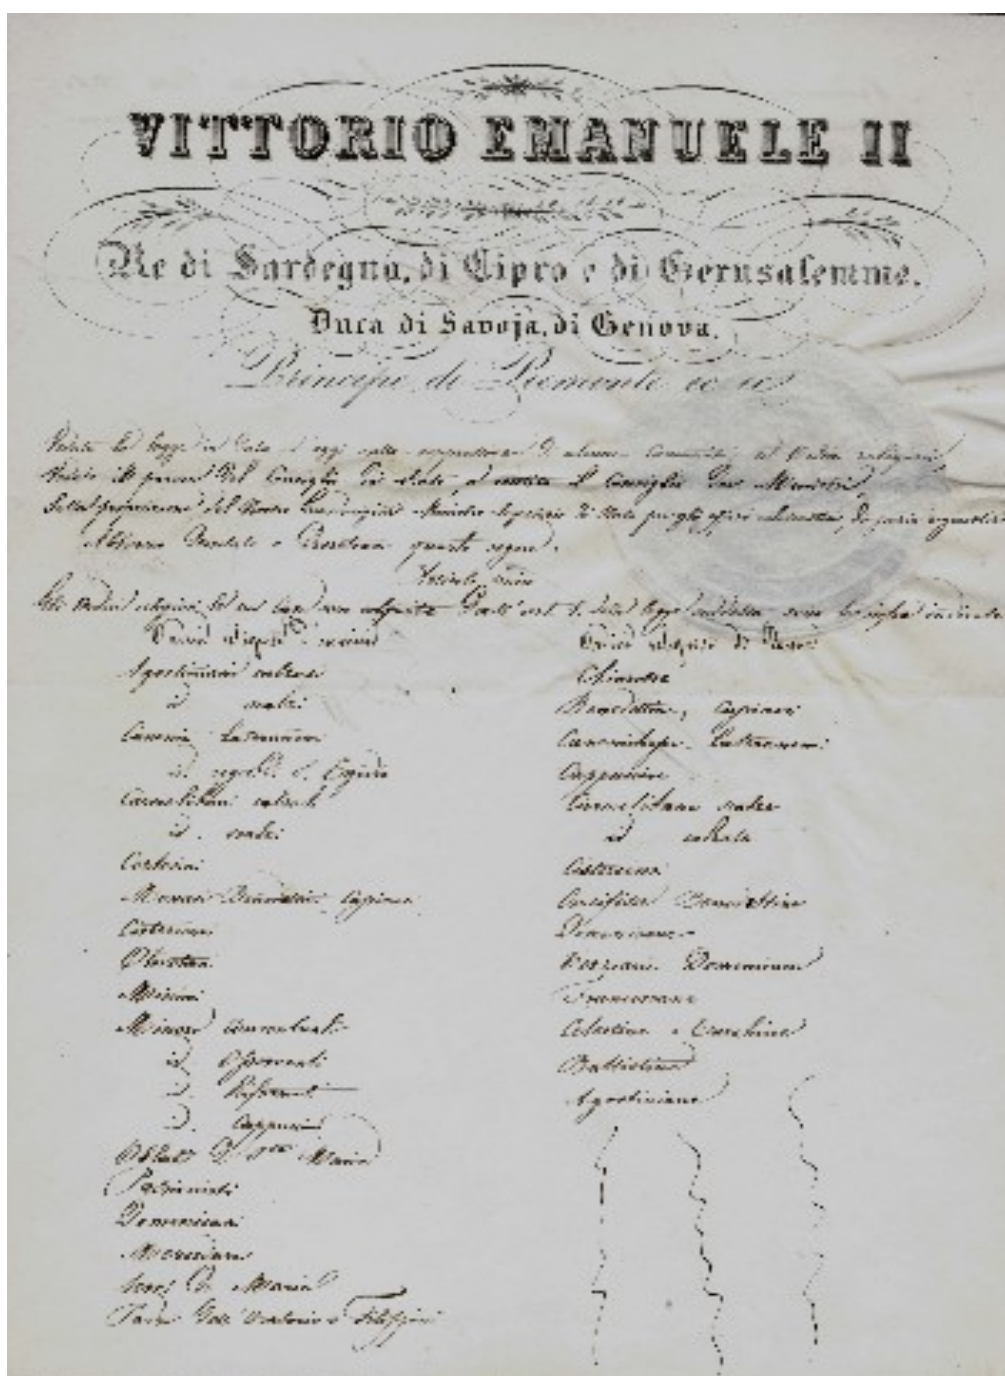 VITTORIO EMANUELE II
Re di Sardegna, di Cipro e di Gerusalemme,
Duca di Savoja, di Genova,
Principe di Piemonte ec ec
Veduta la legge in data d'oggi sulla soppressione di alcune Comunità ed Ordini religiosi,
Veduto il parere del Consiglio di Stato, e sentito il Consiglio dei Ministri,
Sulla proposizione del Nostro Guardasigilli Ministro Segretario di Stato per gli affari ecclesiastici, di grazia e giustizia
Abbiamo Decretato e Decretiamo quanto segue:
Articolo unico
Gli Ordini religiosi le cui case sono colpite dall'art. 1. della legge suddetta sono i seguenti
Ordini religiosi
Agostiniani calzati
id scalzi
Canonici Lateranensi
id. regol. S. Egidio
Carmelitani calzati
id. scalzi
Certosini
Monaci Benedettini Cassinesi
Cisterciensi
Olivetani
Minimi
Minori Conventuali
id. Osservanti
id. Riformati
id. Cappuccini
Oblati di S. Maria
Passionisti
Domenicani
Mercedari
Servi di Maria
Padri dell'Oratorio o Filippini
Ordini religiosi di
Clarisse
Benedettine, Cassinesi
Canonichesse Lateranensi
Cappuccine
Carmelitane scalze
id calzate
Cisterciensi
Crocifisse Benedettine
Domenicane
Terziarie Domenicane
Francescane
Celestine o Turchine
Battistine
Agostiniane